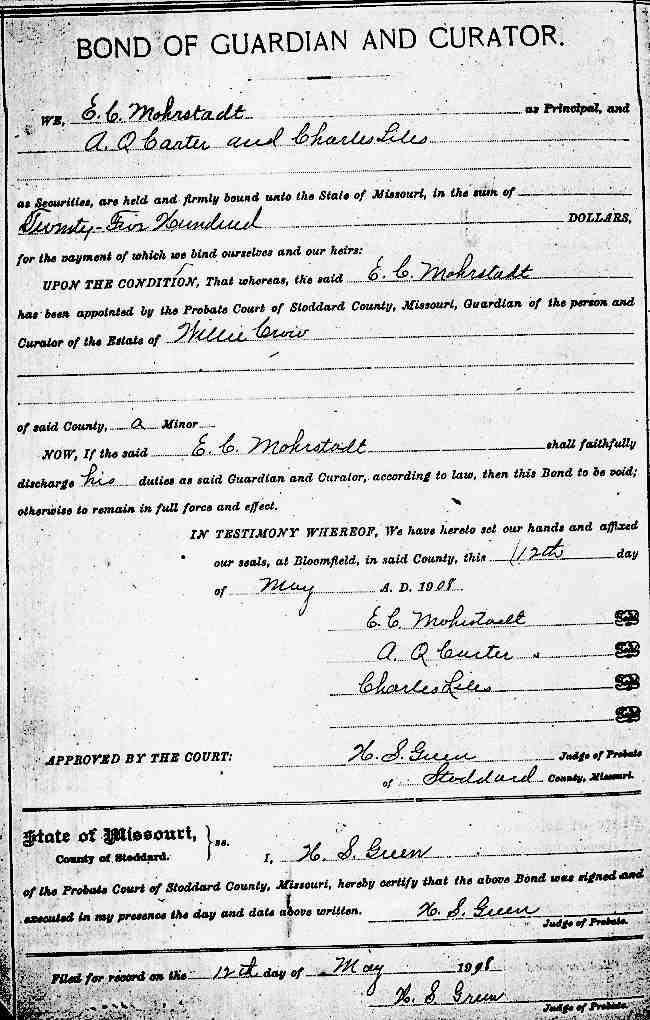 BOND OF GUARDIAN AND CURATOR.
WE, E. C. Mohrstadt as Principal, and
A. Q Carter and Charles Liles
as Securities, are held and firmly bound unto the State of Missouri, in the sum of
Twenty-Five Hundred DOLLARS,
for the payment of which we bind ourselves and our heirs:
UPON THE CONDITION, That whereas, the said E. C. Mohrstadt
has been appointed by the Probate Court of Stoddard County, Missouri, Guardian of the person and
Curator of the Estate of Willie
of said County, a Minor
NOW, If the said E. C. Mohrstadt shall faithfully
discharge his duties as said Guardian and Curator, according to law, then this Bond to be void;
otherwise to remain in full force and effect.
IN TESTIMONY WHEREOF, We have hereto set our hands and affixed
our seals, at Bloomfield, in said County, this 12th day
of May A. D. 1908
E. C. Mohrstadt Seal
A. Q Carter Seal
Charles Liles Seal
Seal
APPROVED BY THE COURT: H. S. Green Judge of Probate
of Stoddard County, Missouri.
State of Missouri,
County of Stoddard. } ss. I, H. S. Green
of the Probate Court of Stoddard County, Missouri, hereby certify that the above Bond was signed and
executed in my presence the day and date above written. H. S. Green
Judge of Probate.
Filed for record on the 12th day of May 1908
H. S. Green
Judge of Probate.